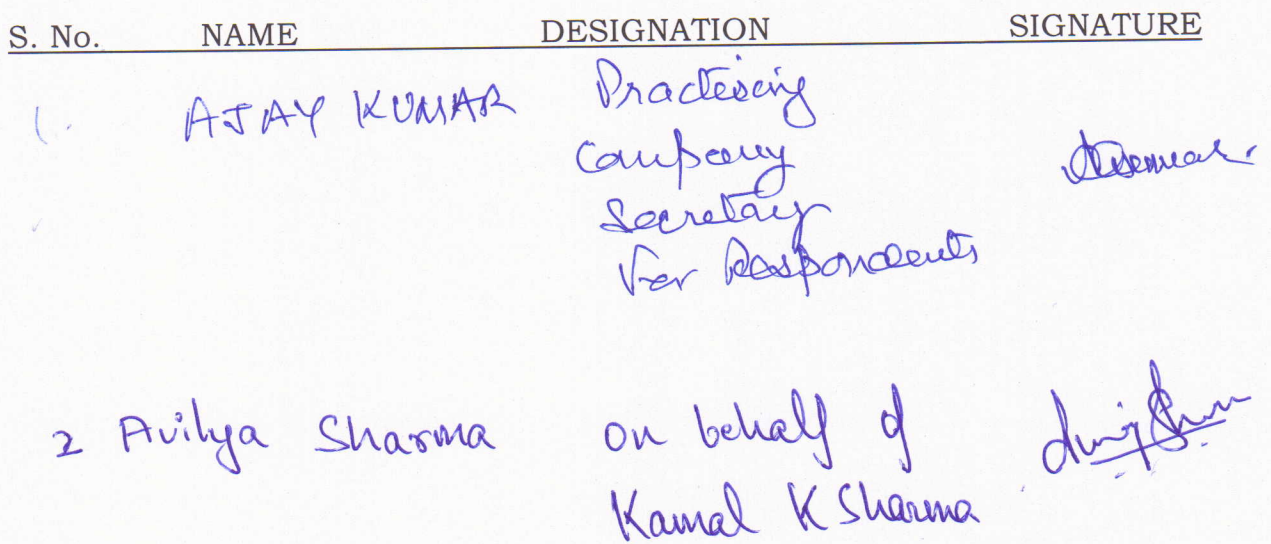 S. No. NAME DESIGNATION SIGNATURE
1. AJAY KUMAR Practising
Company
Secretary
For Respondents
2 Avilya Sharma on behalf of
Kamal K Sharma